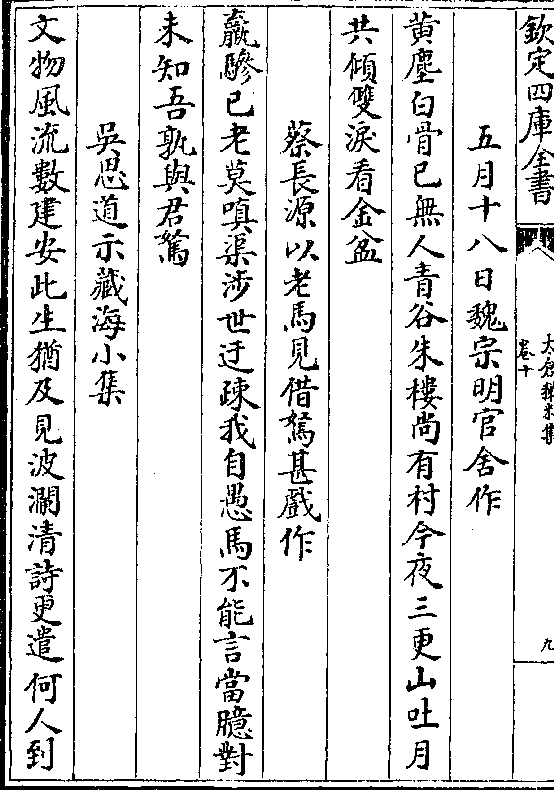 欽定四庫全書
太倉稊米集
卷十
九
五月十八日魏宗明官舍作
黄塵白骨已無人青谷朱樓尚有村今夜三更山吐月
共傾雙淚看金盆
蔡長源以老馬見借駑甚戲作
羸驂已老莫嗔渠涉世迂疎我自愚馬不能言當臆對
未知吾孰與君駑
吳思道示藏海小集
文物風流數建安此生猶及見波瀾清詩更遣何人到